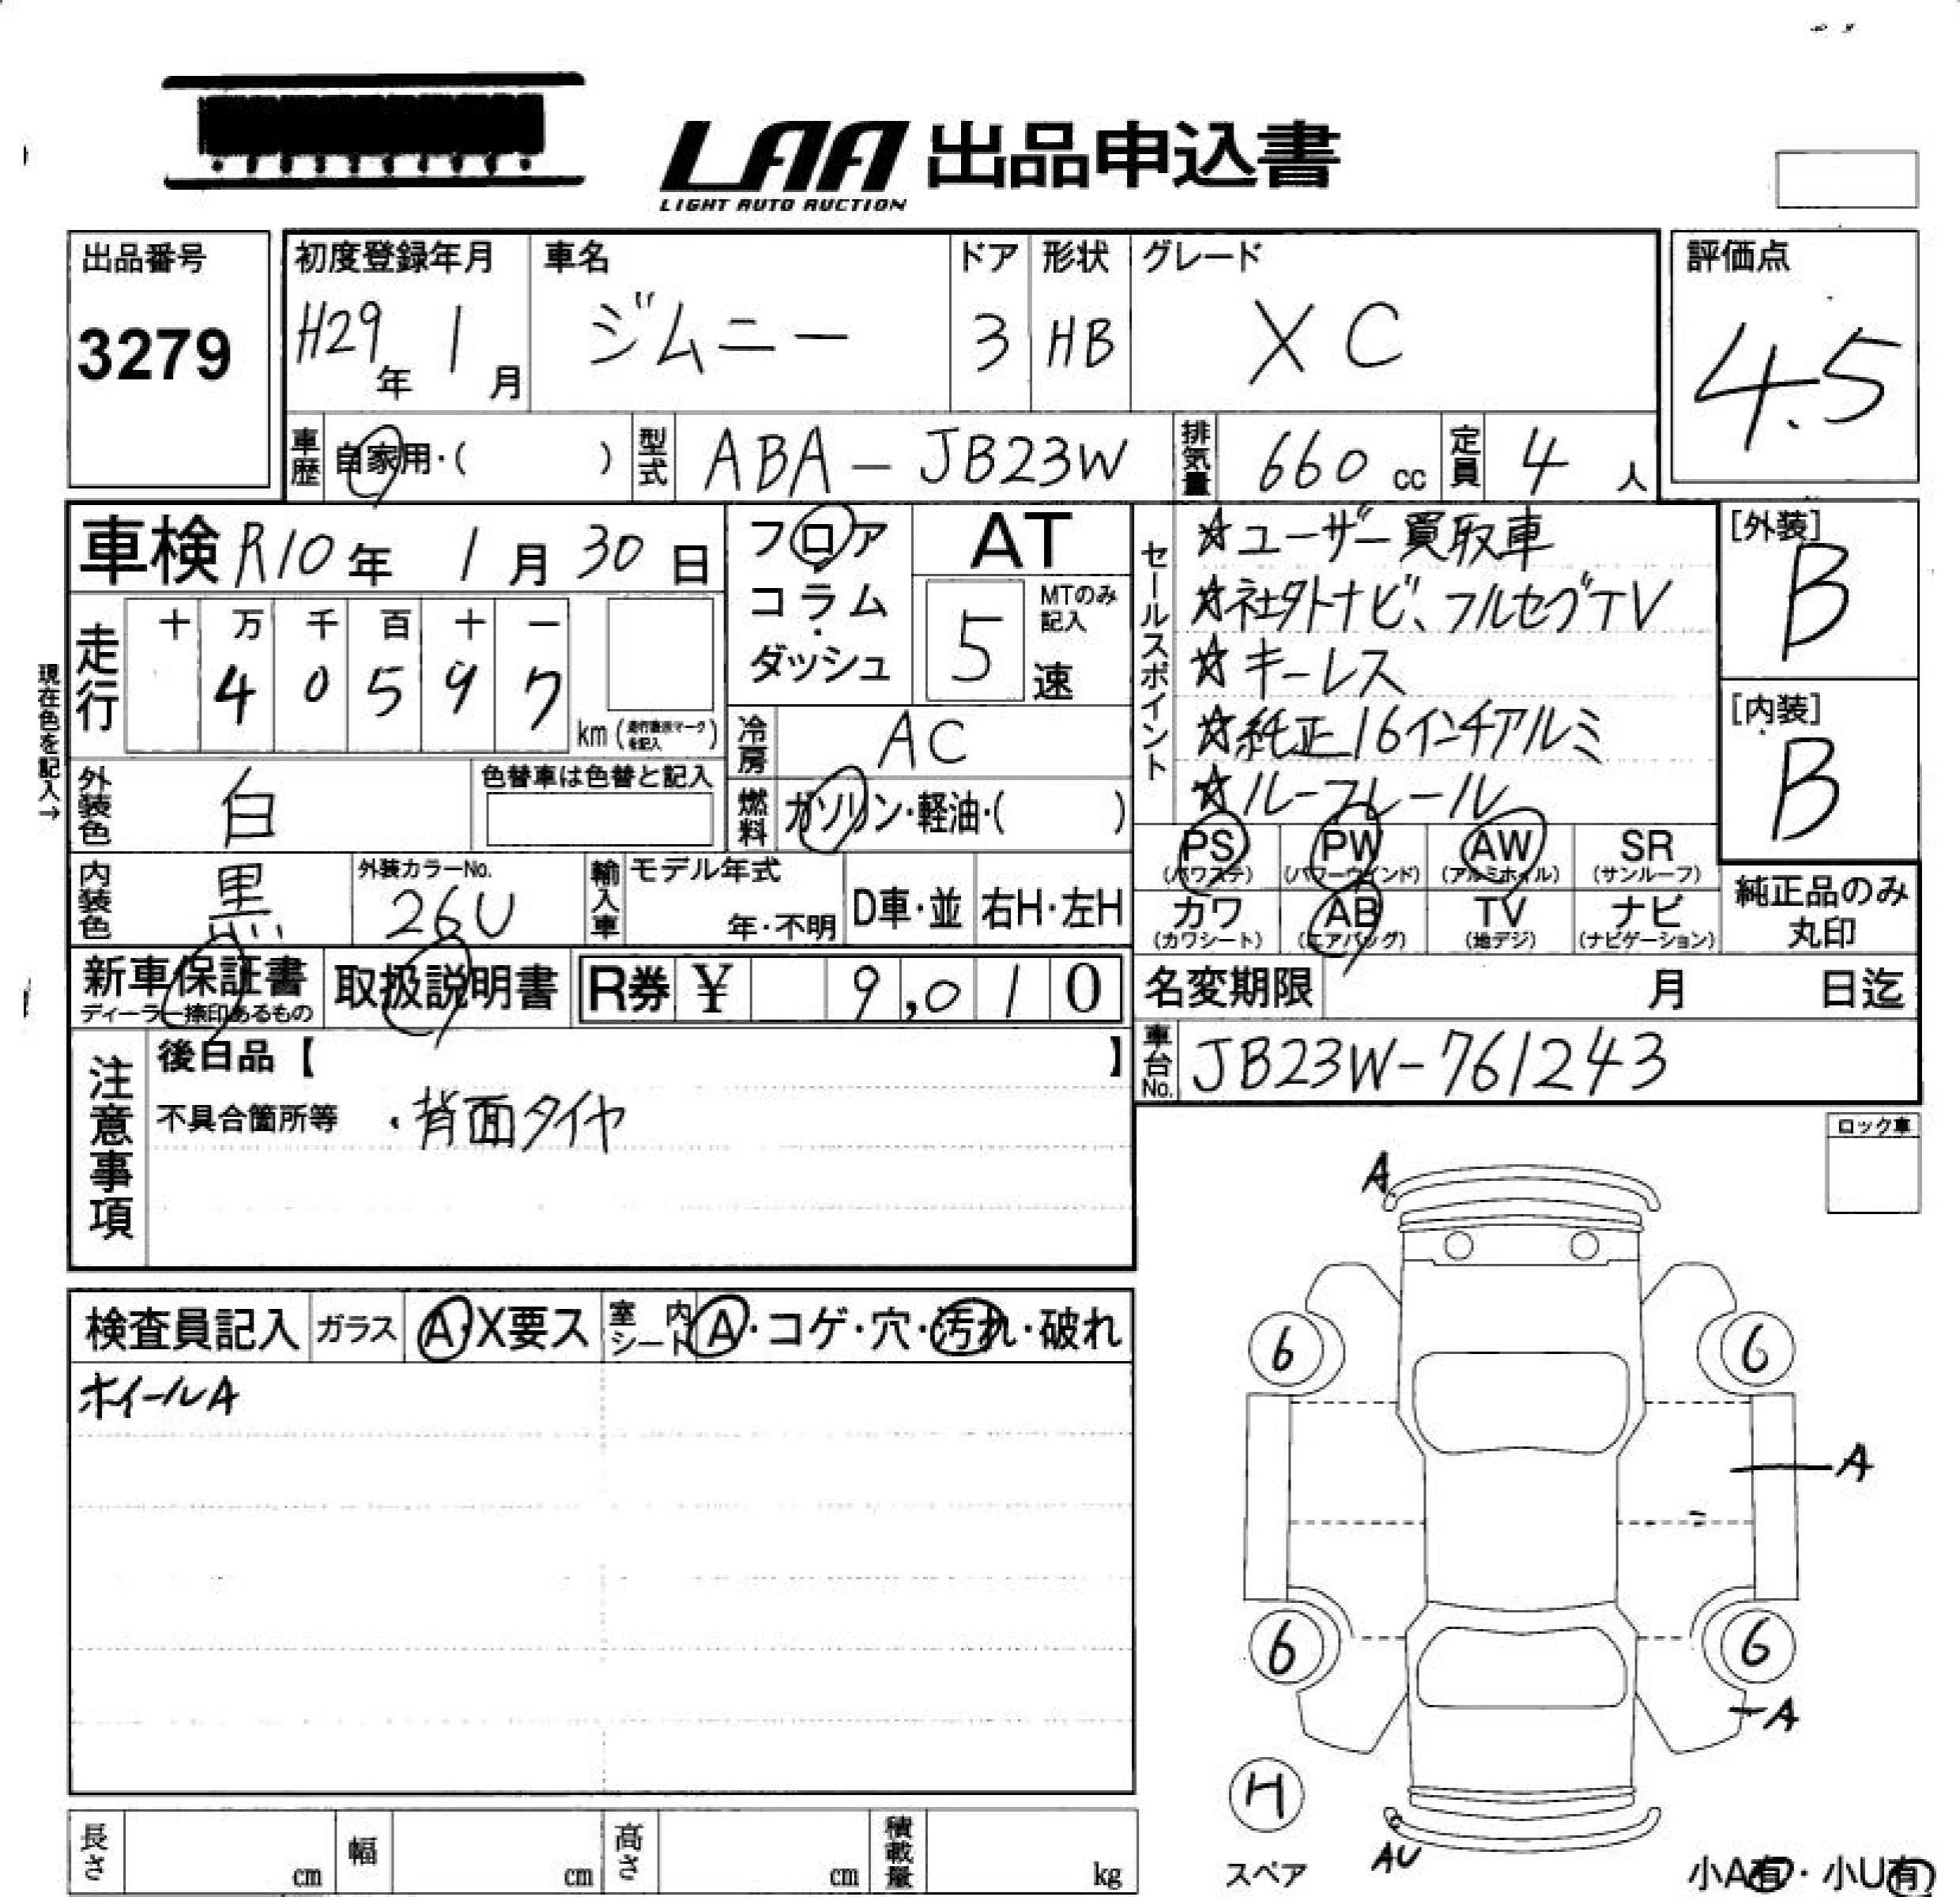 LAA 出品申込書
LIGHT AUTO AUCTION
出品番号
3279
初度登録年月
H29年 1月
車名
ジムニー
ドア
3
形状
HB
グレード
XC
評価点
4.5
車歴 自家用・( )
型式 ABA-JB23W
排気量 660 cc
定員 4 人
車検 R10年 1月 30日
走行
十 万 千 百 十 一
4 0 5 9 7
km (走行表示マークを記入)
現在色を記入→
フロア
・
コラム
・
ダッシュ
AT
5
MTのみ記入
速
冷房 AC
燃料 ガソリン・軽油・( )
セールスポイント
☆ユーザー買取車
☆社外ナビ、フルセグTV
☆キーレス
☆純正16インチアルミ
☆ルーフレール
[外装]
B
[内装]
B
外装色 白
色替車は色替と記入
内装色 黒
外装カラーNo.
26U
輸入車 モデル年式
年・不明
D車・並
右H・左H
PS (パワステ)
PW (パワーウインド)
AW (アルミホイル)
SR (サンルーフ)
カワ (カワシート)
AB (エアバッグ)
TV (地デジ)
ナビ (ナビゲーション)
純正品のみ
丸印
新車保証書
ディーラー捺印あるもの
取扱説明書
R券 ¥ 9,010
名変期限 月 日迄
車台No. JB23W-761243
注意事項
後日品【 】
不具合箇所等 ・背面タイヤ
ロック車
検査員記入
ガラス A・X要ス
室内シート A・コゲ・穴・汚れ・破れ
ホイールA
A
6
6
A
6
6
A
H
スペア
AU
小A有・小U有
長さ cm
幅 cm
高さ cm
積載量 kg